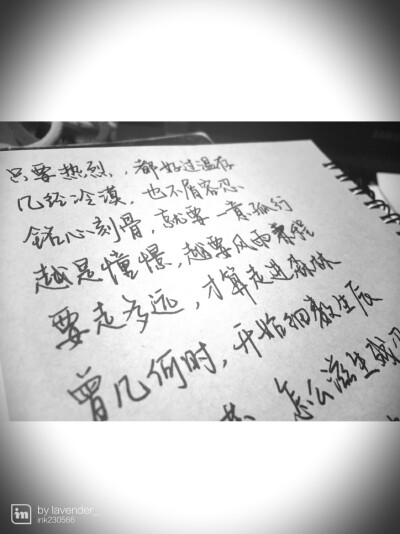 只要热烈，都好过温存
几经冷漠，也不屑容忍
铭心刻骨，就要一意孤行
越是憧憬，越要风雨兼程
要走多远，才算走进森林
曾几何时，开始细数生辰
怎么滋生
in by lavender_
ink230566